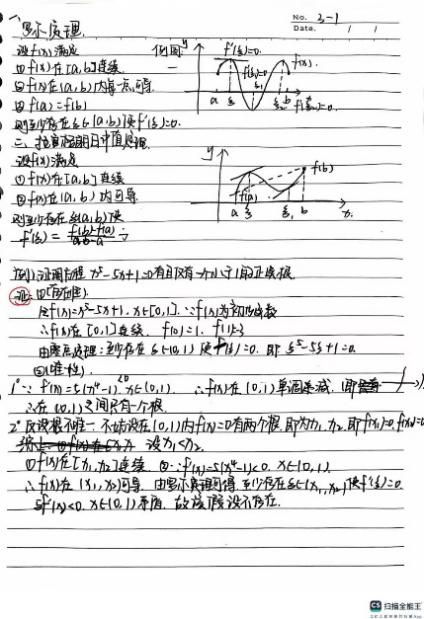 一、罗尔定理.
No. 3-1
Date.
设f(x)满足
例图:
y
f'(ξ1)=0.
f(x).
① f(x)在[a,b]连续
② f(x)在(a,b)内每一点可导
a ξ1 ξ2 b
③ f(a)=f(b)
则至少存在ξ∈(a,b)使f'(ξ)=0.
二、拉格朗日中值定理.
设f(x)满足
y
f(b)
① f(x)在[a,b]连续
② f(x)在(a,b)内可导
f(a)
则至少存在ξ(a,b)使
a ξ1 ξ2 b x
f'(ξ)=
例1:证明方程 x^5-5x+1=0有且仅有一个小于1的正实根.
证: ①(存在性).
设f(x)=x^5-5x+1, x∈[0,1]. ∵f(x)为初等函数
∴f(x)在[0,1]连续. f(0)=1, f(1)=-3
由零点定理:至少存在ξ∈(0,1)使f(ξ)=0. 即ξ^5-5ξ+1=0.
②(唯一性).
1° ∵ f'(x)=5(x^4-1)<0 x∈(0,1). ∴f(x)在(0,1)单调递减.
∴在(0,1)之间只有一个根.
2° 反设根不唯一,不妨设在(0,1)内f(x)=0有两个根,即为x1,x2,即f(x1)=0,f(x2)=0
设x1<x2.
① f(x)在[x1,x2]连续 ②∵f'(x)=5(x^4-1)<0, x∈(0,1).
∴f(x)在(x1,x2)可导. 由罗尔定理可得,至少存在ξ∈(x1,x2)使f'(ξ)=0
与f'(x)<0, x∈(0,1)矛盾, 故该假设不存在.
CS 扫描全能王